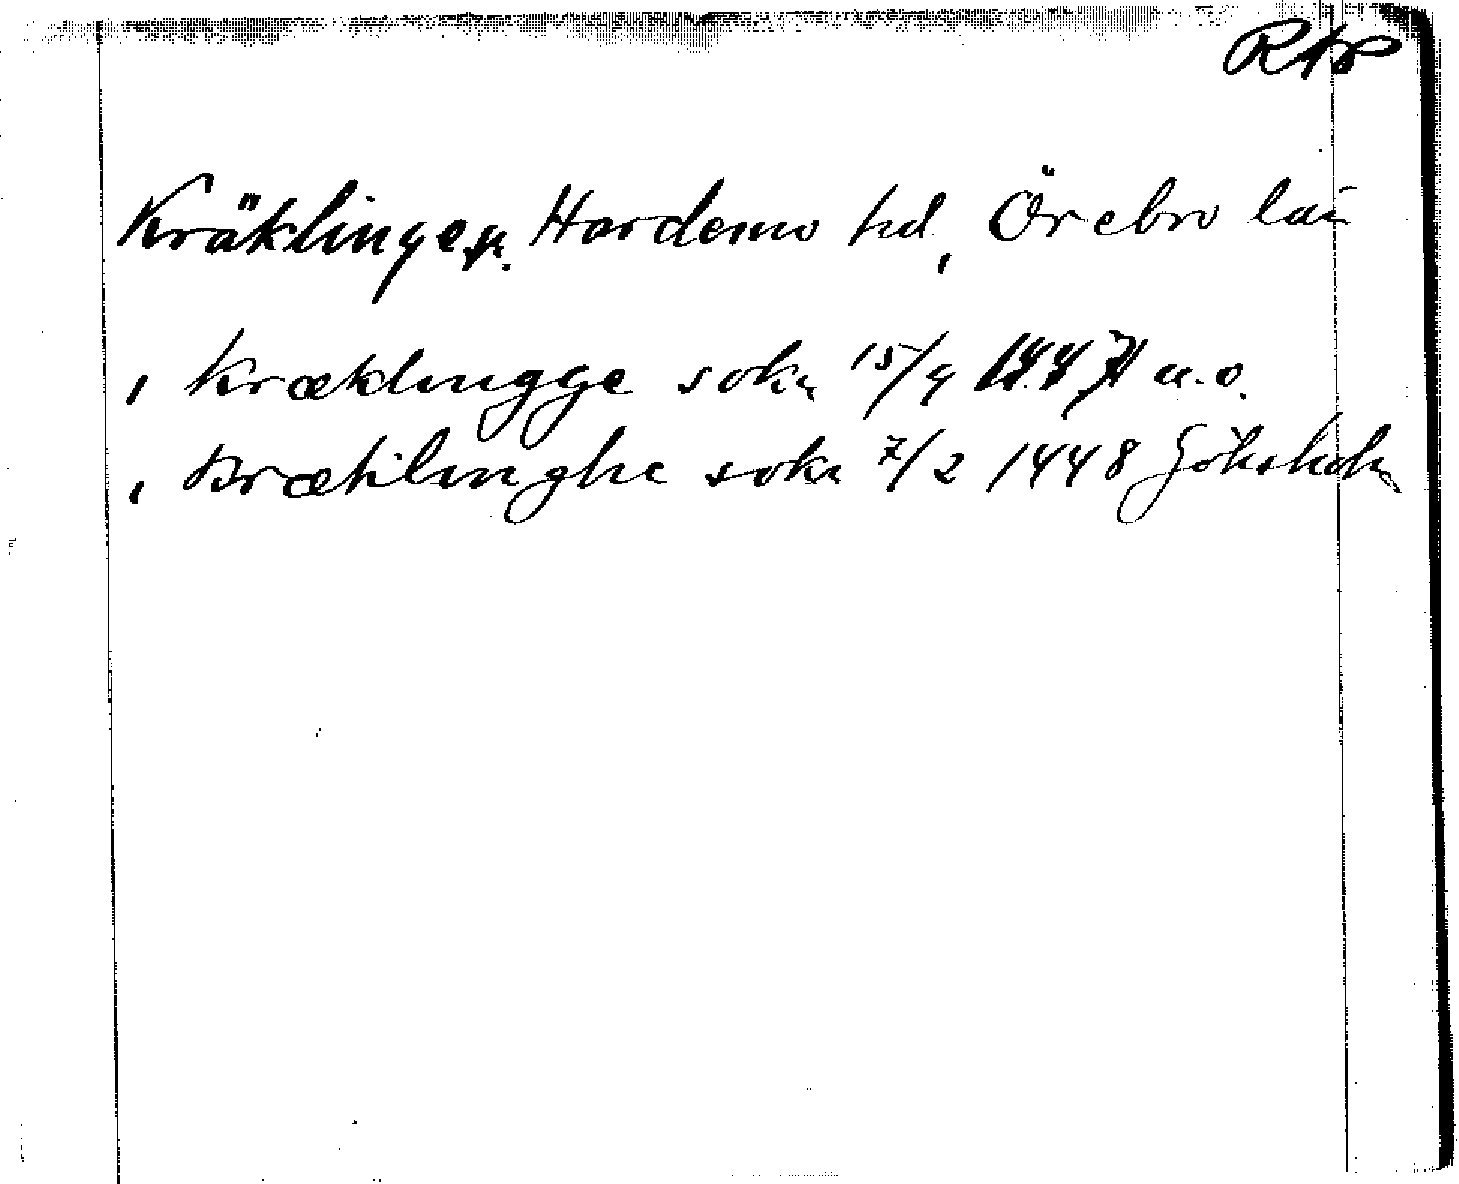 Kräklinge sn. Hardemo hd, Örebro län
i Kræklingge sokn 15/9 1447 u.o.
i Kræklinghe sokn 7/2 1448 Göksholm